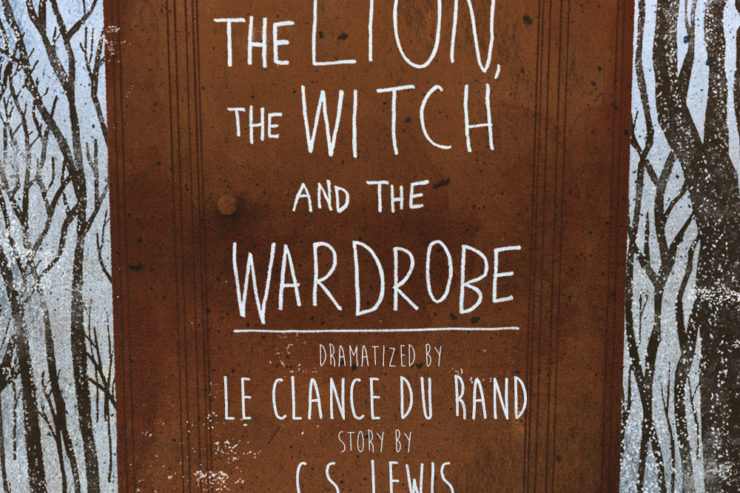 THE LION,
THE WITCH
AND THE
WARDROBE
DRAMATIZED BY
LE CLANCE DU RAND
STORY BY
C.S. LEWIS